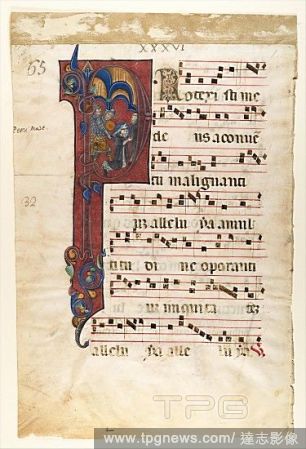 XXXVI
65
rotexisti me
de us a conuē
tu malignanti
um alleluya a mul
titudine operanti
um iniquita tez
alleluya alle luya
32
TPG
www.tpgnews.com/達志影像